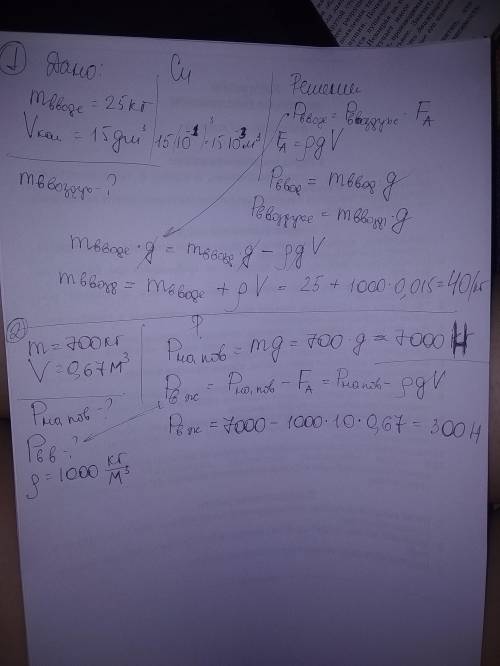 1 Дано: Си Решение
m в воде = 25 кг
V кам = 15 дм³ 15(10⁻¹)³ = 15·10⁻³ м³
m в воздухе - ?
P в воде = P в воздухе - F_A
F_A = ρgV
P в вод = m в вод g
P в воздухе = m в возд · g
m в воде · g = m в воздр · g - ρgV
m в возд = m в воде + ρV = 25 + 1000·0,015 = 40/кг
2
m = 700 кг
V = 0,67 м³
P на пов - ?
P в в - ?
ρ = 1000 кг/м³
P на пов = mg = 700·g ≈ 7000 Н
P в ж = P на пов - F_A = P на пов - ρgV
P в ж = 7000 - 1000·10·0,67 = 300 Н